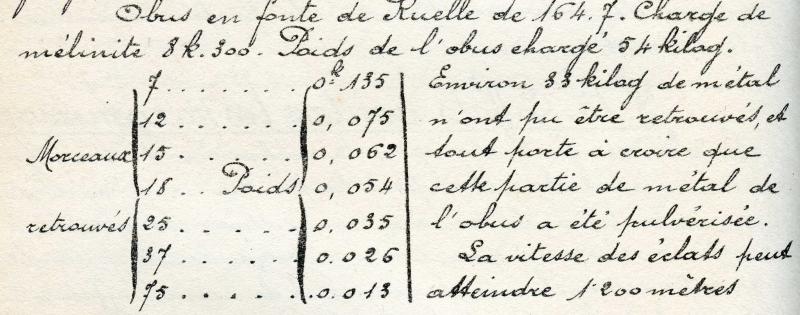 Obus en fonte de Ruelle de 164.7. Charge de
mélinite 8k.300. Poids de l'obus chargé 54 kilog.
7 . . . . . . . 0k 135 Environ 33 kilog de métal
12 . . . . . . 0, 075 n'ont pu être retrouvés, et
Morceaux 15 . . . . . . 0, 062 tout porte à croire que
18 . . Poids 0, 054 cette partie de métal de
retrouvés 25 . . . . . 0. 035 l'obus a été pulvérisée.
37 . . . . . . 0. 026 La vitesse des éclats peut
75 . . . . . . 0. 013 atteindre 1200 mètres